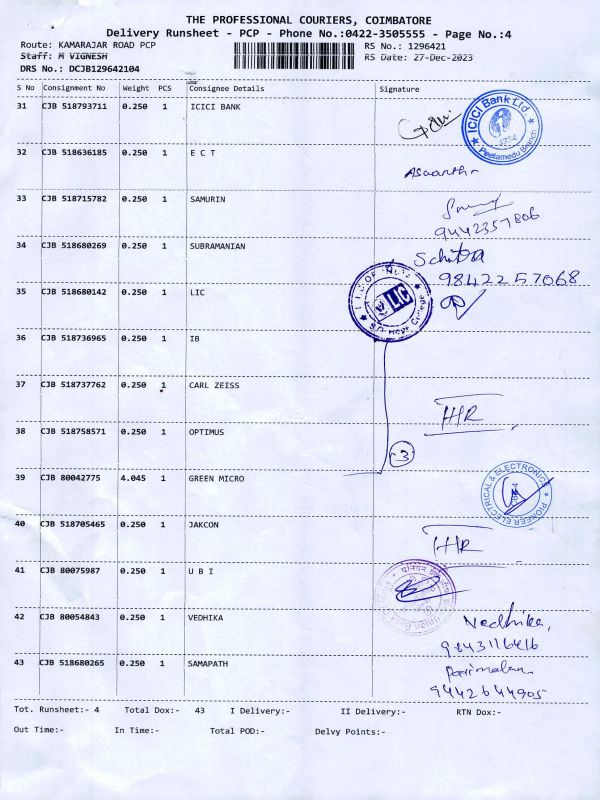 THE PROFESSIONAL COURIERS, COIMBATORE
Delivery Runsheet - PCP - Phone No.:0422-3505555 - Page No.:4
Route: KAMARAJAR ROAD PCP
RS No.: 1296421
Staff: M VIGNESH
RS Date: 27-Dec-2023
DRS No.: DCJB129642104
S No Consignment No Weight PCS Consignee Details Signature
31 CJB 518793711 0.250 1 ICICI BANK
ICICI Bank Ltd
Peelamedu Branch
32 CJB 518636185 0.250 1 E C T
33 CJB 518715782 0.250 1 SAMURIN
9442357806
34 CJB 518680269 0.250 1 SUBRAMANIAN
9842257068
35 CJB 518680142 0.250 1 LIC
LIC
36 CJB 518736965 0.250 1 IB
37 CJB 518737762 0.250 1 CARL ZEISS
38 CJB 518758571 0.250 1 OPTIMUS
3
39 CJB 80042775 4.045 1 GREEN MICRO
PIONEER ELECTRICAL & ELECTRONICS
40 CJB 518705465 0.250 1 JAKCON
41 CJB 80075987 0.250 1 U B I
42 CJB 80054843 0.250 1 VEDHIKA
Vedhika,
9843116416
43 CJB 518680265 0.250 1 SAMAPATH
9442644905
Tot. Runsheet:- 4 Total Dox:- 43 I Delivery:- II Delivery:- RTN Dox:-
Out Time:- In Time:- Total POD:- Delvy Points:-